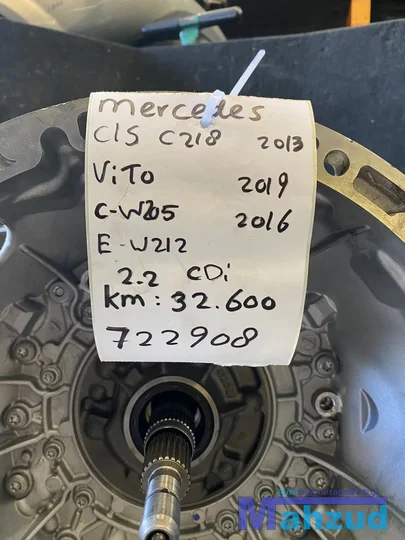 mercedes
ClS C218 2013
ViTo 2019
C-W205 2016
E-W212
2.2 CDi
km: 32.600
722908
Mahzud